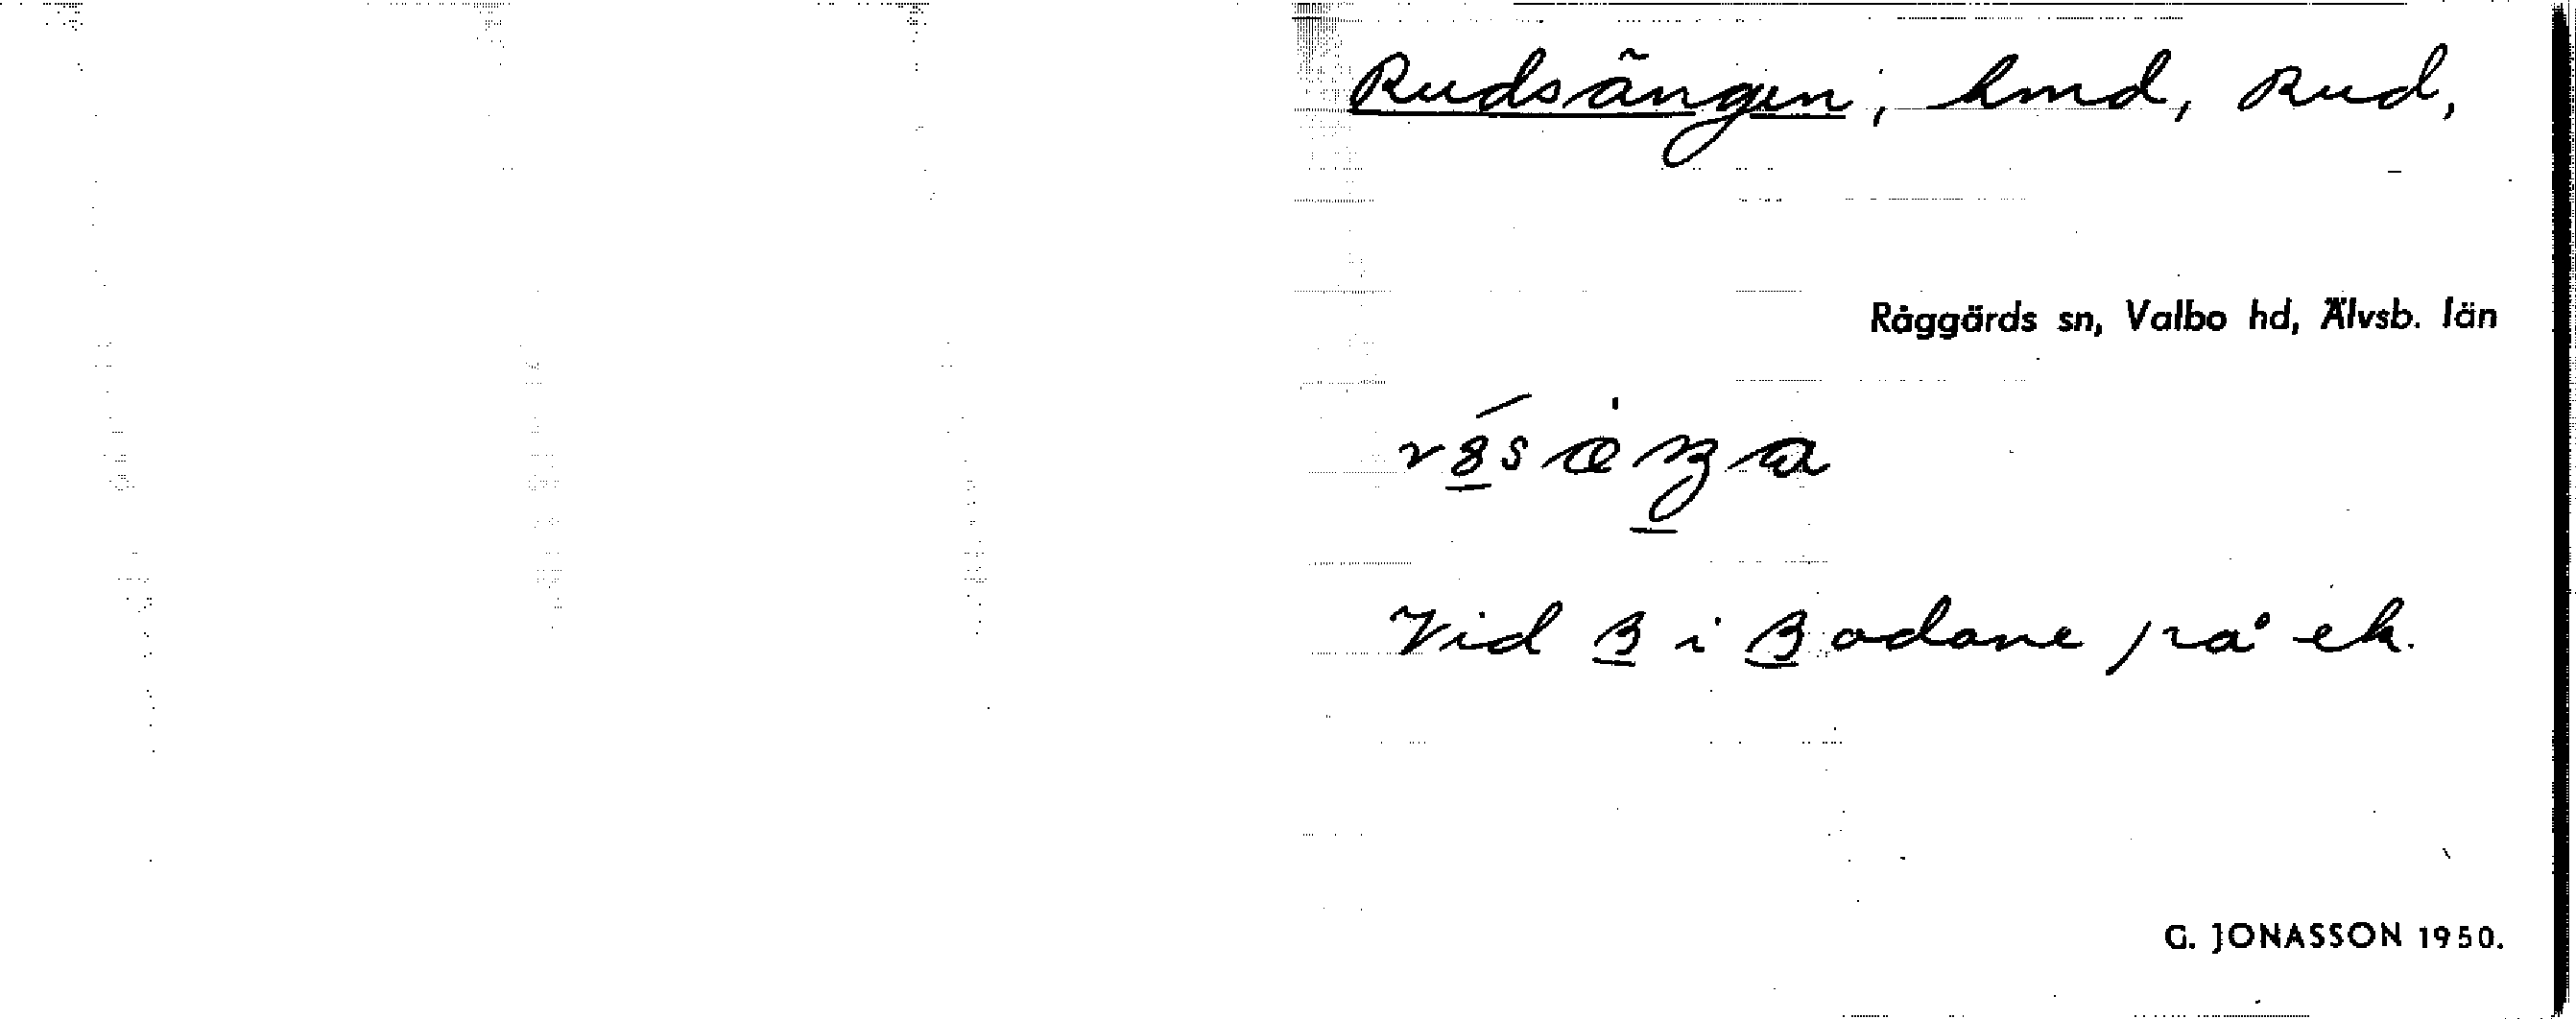 Rudsängen, hmd, Rud,
Råggärds sn, Valbo hd, Älvsb. län
Vid B i Bodane på ek.
G. JONASSON 1950.